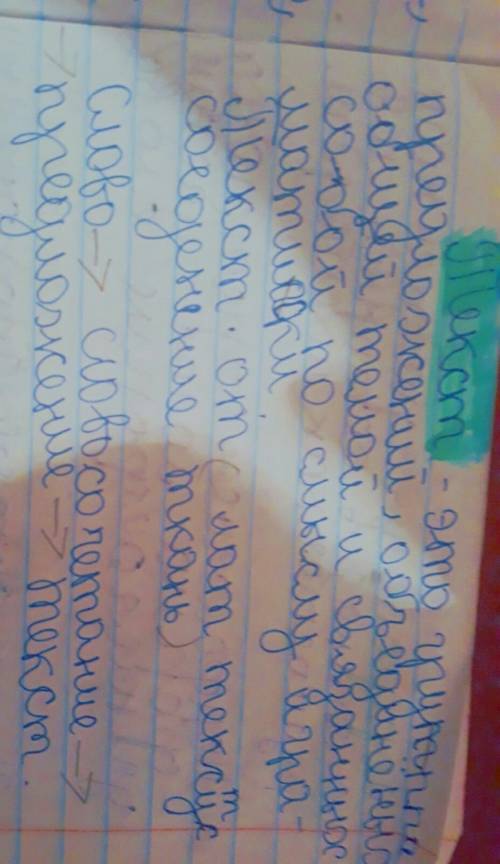 Текст - это группа
предложений, объединены
общей темой и связанных
собой по смыслу и гра-
матики
Текст. от (лат текстус
соеденение ткань)
слово → словосочетание →
→ предложение → текст.